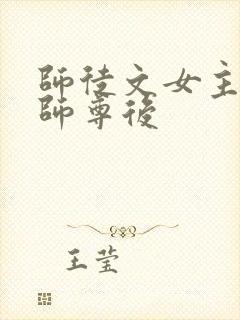 師徒文女主
師尊後
王莹